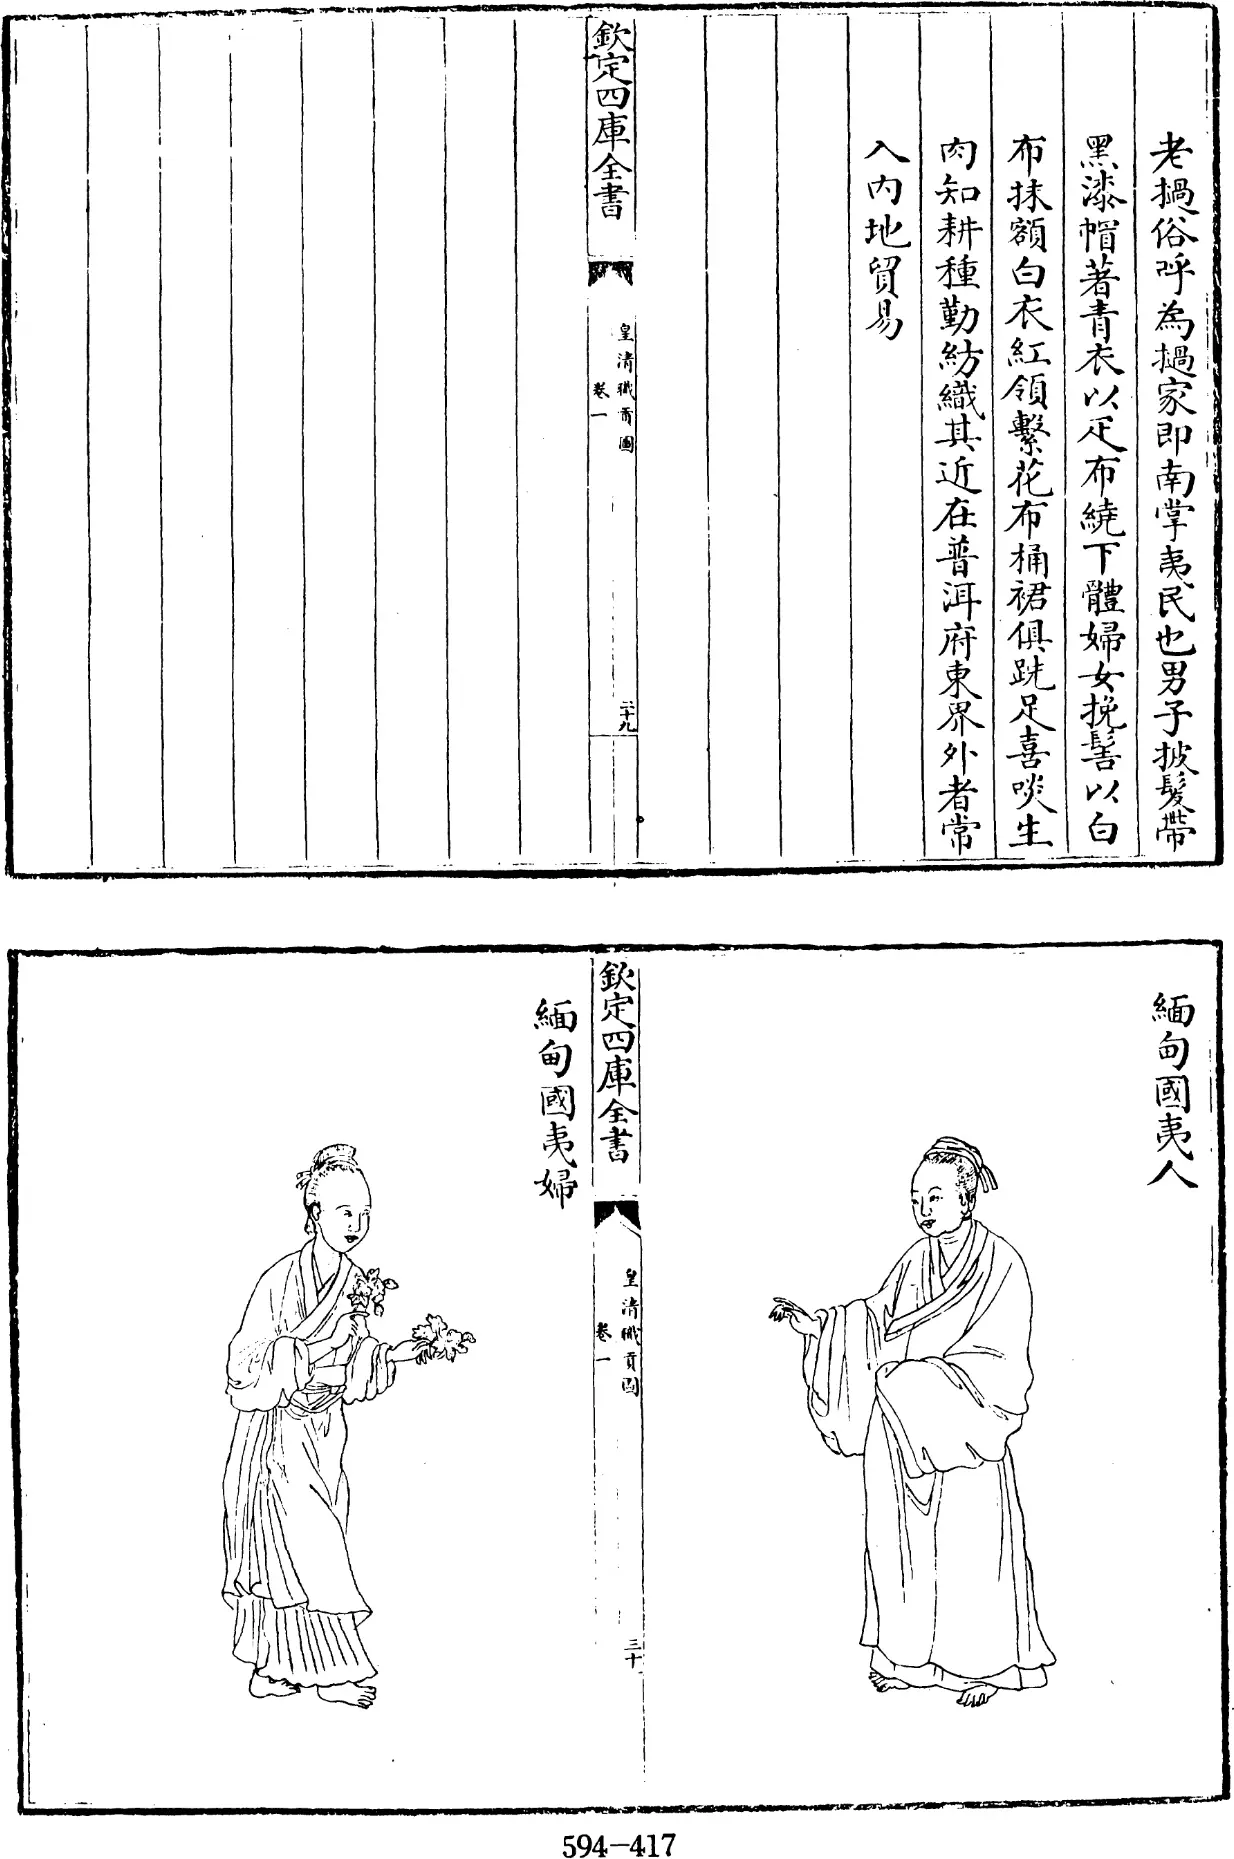 老撾俗呼為撾家即南掌夷民也男子披髮帶
黑漆帽著青衣以疋布繞下體婦女挽髻以白
布抹額白衣紅領繫花布桶裙俱跣足喜啖生
肉知耕種勤紡織其近在普洱府東界外者常
入內地貿易
欽定四庫全書
皇清職貢圖
卷一
二十九
緬甸國夷人
欽定四庫全書
皇清職貢圖
卷一
三十
緬甸國夷婦
594-417